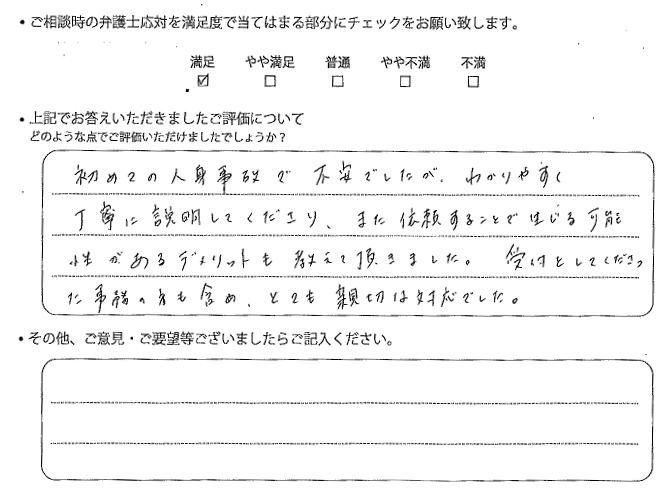 ・ご相談時の弁護士応対を満足度で当てはまる部分にチェックをお願い致します。
満足 やや満足 普通 やや不満 不満
☑ ☐ ☐ ☐ ☐
・上記でお答えいただきましたご評価について
どのような点でご評価いただけましたでしょうか？
初めての人身事故で不安でしたが、わかりやすく
丁寧に説明してくださり、また依頼することで生じる可能
性があるデメリットも教えて頂きました。 受付をしてくださっ
た事務の方も含め、とても親切な対応でした。
・その他、ご意見・ご要望等ございましたらご記入ください。